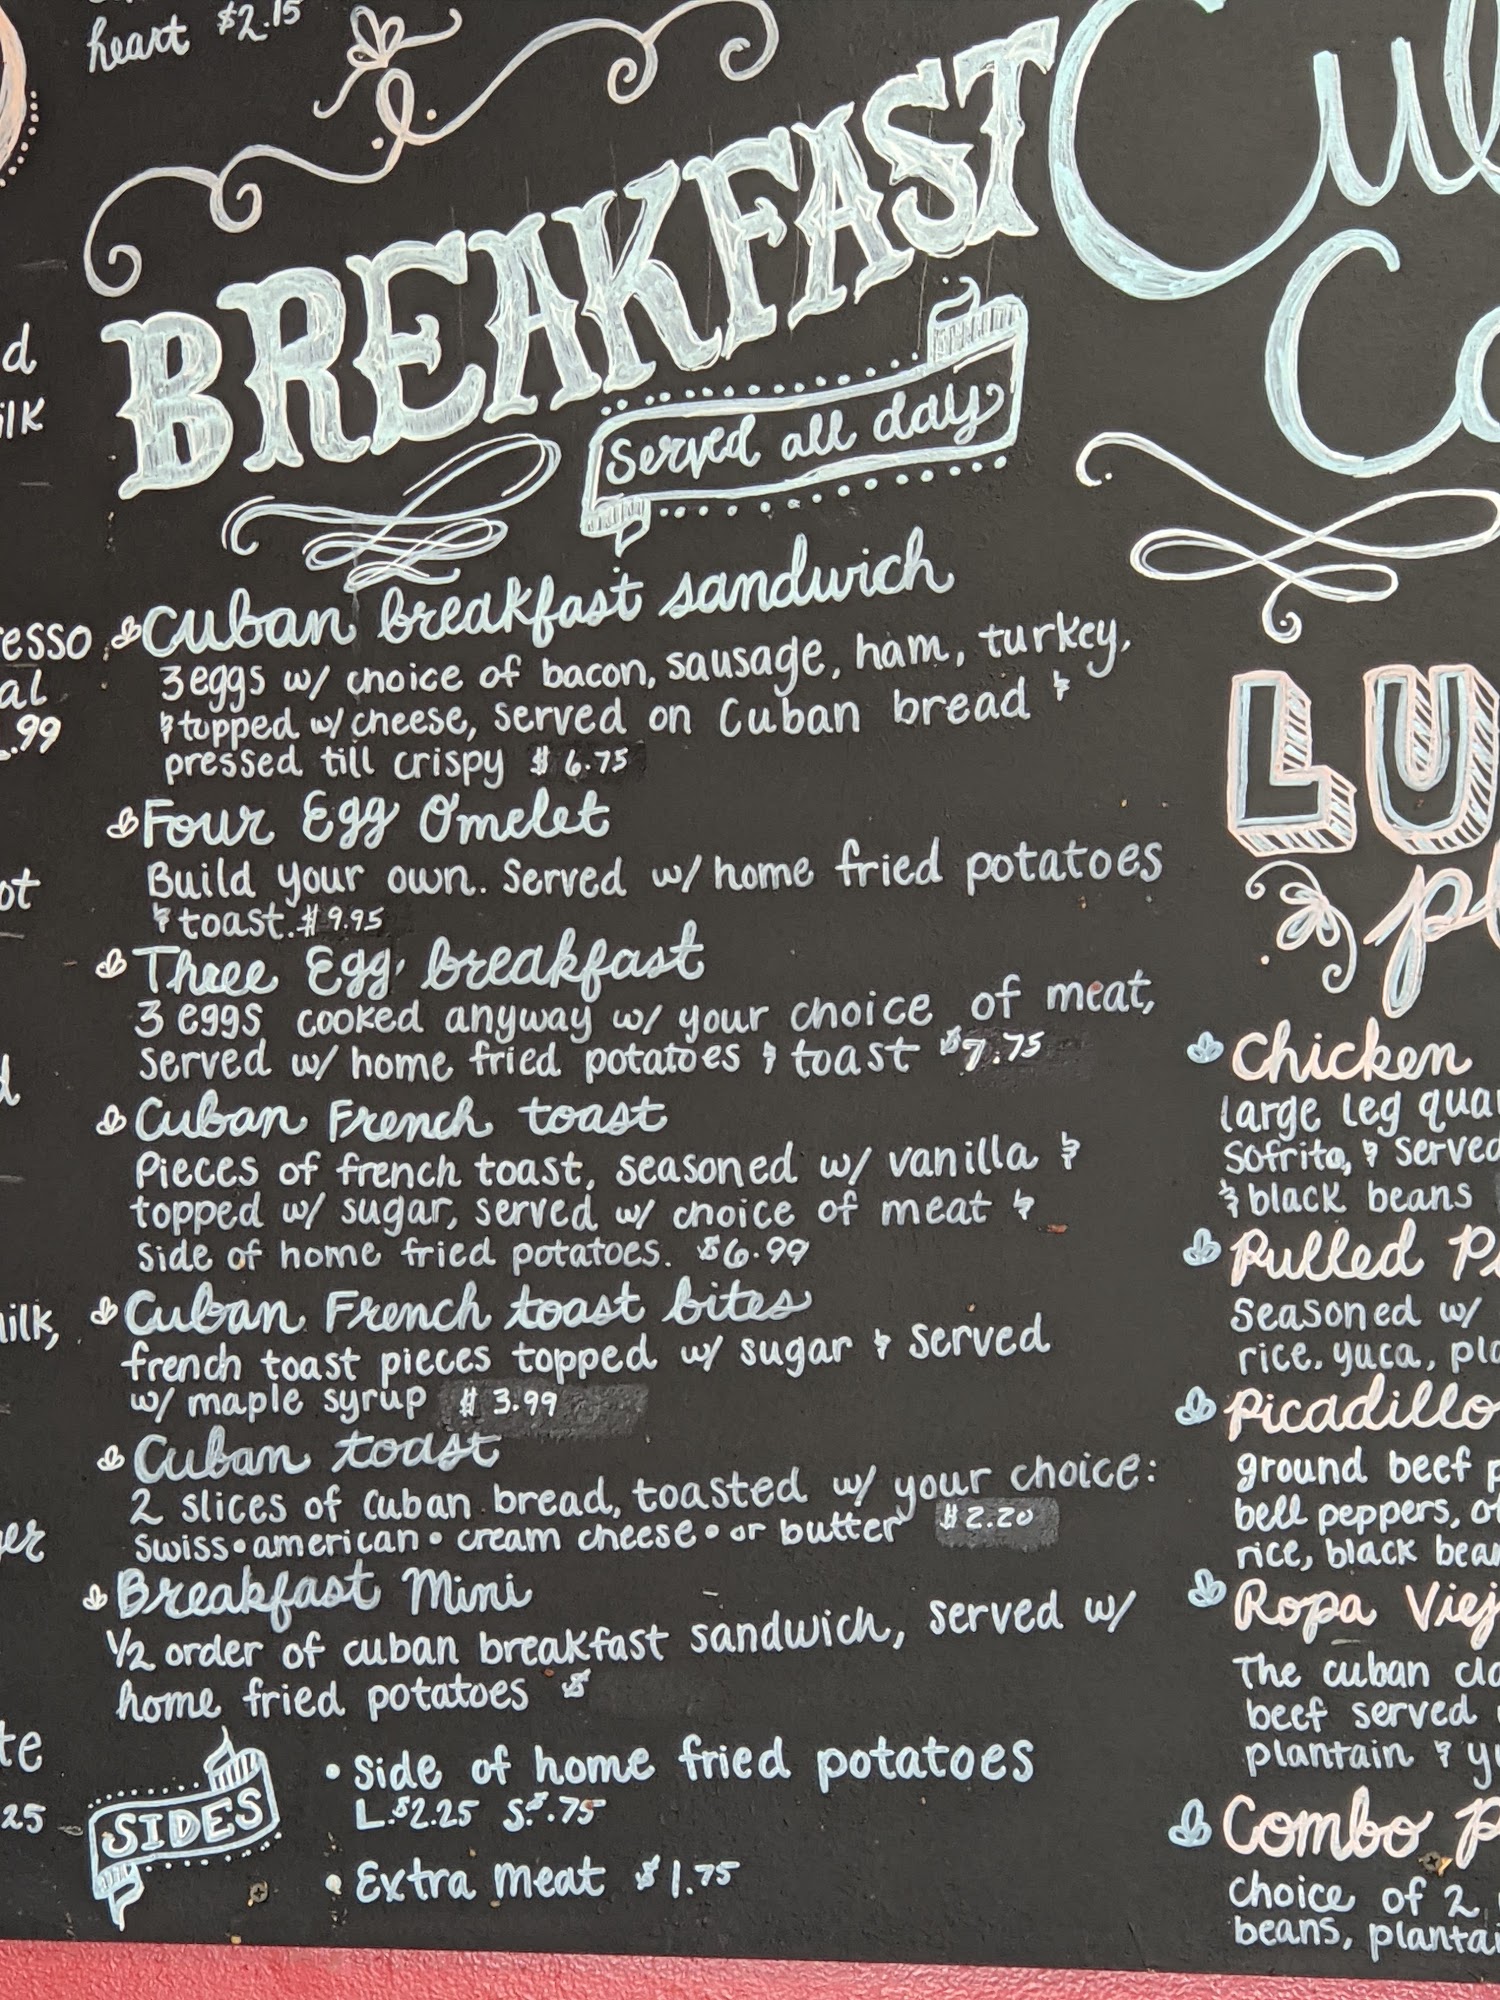 heart $2.15
BREAKFAST
served all day
Cuban breakfast sandwich
3 eggs w/ choice of bacon, sausage, ham, turkey,
& topped w/ cheese, served on Cuban bread &
pressed till crispy $ 6.75
Four Egg Omelet
Build your own. Served w/ home fried potatoes
& toast. $ 9.95
Three Egg breakfast
3 eggs cooked anyway w/ your choice of meat,
served w/ home fried potatoes & toast $7.75
Cuban French toast
Pieces of french toast, seasoned w/ vanilla &
topped w/ sugar, served w/ choice of meat &
side of home fried potatoes. $6.99
Cuban French toast bites
french toast pieces topped w/ sugar & served
w/ maple syrup $ 3.99
Cuban toast
2 slices of cuban bread, toasted w/ your choice:
swiss • american • cream cheese • or butter $2.20
Breakfast Mini
1/2 order of cuban breakfast sandwich, served w/
home fried potatoes $
SIDES
• Side of home fried potatoes
L. $2.25 S. $.75
• Extra meat $1.75
LU
Chicken
large leg qua
Sofrito, & served
& black beans
Pulled P
seasoned w/
rice, yuca, pla
Picadillo
ground beef p
bell peppers, o
rice, black bea
Ropa Viej
The cuban cla
beef served
plantain & yu
Combo P
choice of 2
beans, planta